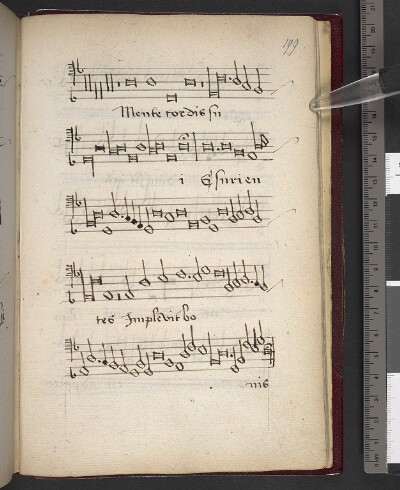 199
Mente cordis sui
i Esurien
tes Implevit bo
nis